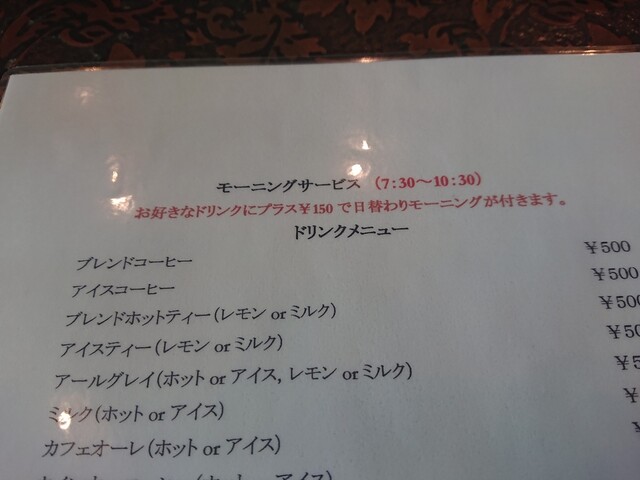 モーニングサービス (7:30～10:30)
お好きなドリンクにプラス￥150で日替わりモーニングが付きます。
ドリンクメニュー
ブレンドコーヒー ￥500
アイスコーヒー ￥500
ブレンドホットティー(レモン or ミルク) ￥500
アイスティー(レモン or ミルク) ￥50
アールグレイ(ホット or アイス, レモン or ミルク) ￥5
ミルク(ホット or アイス) ￥
カフェオーレ(ホット or アイス)